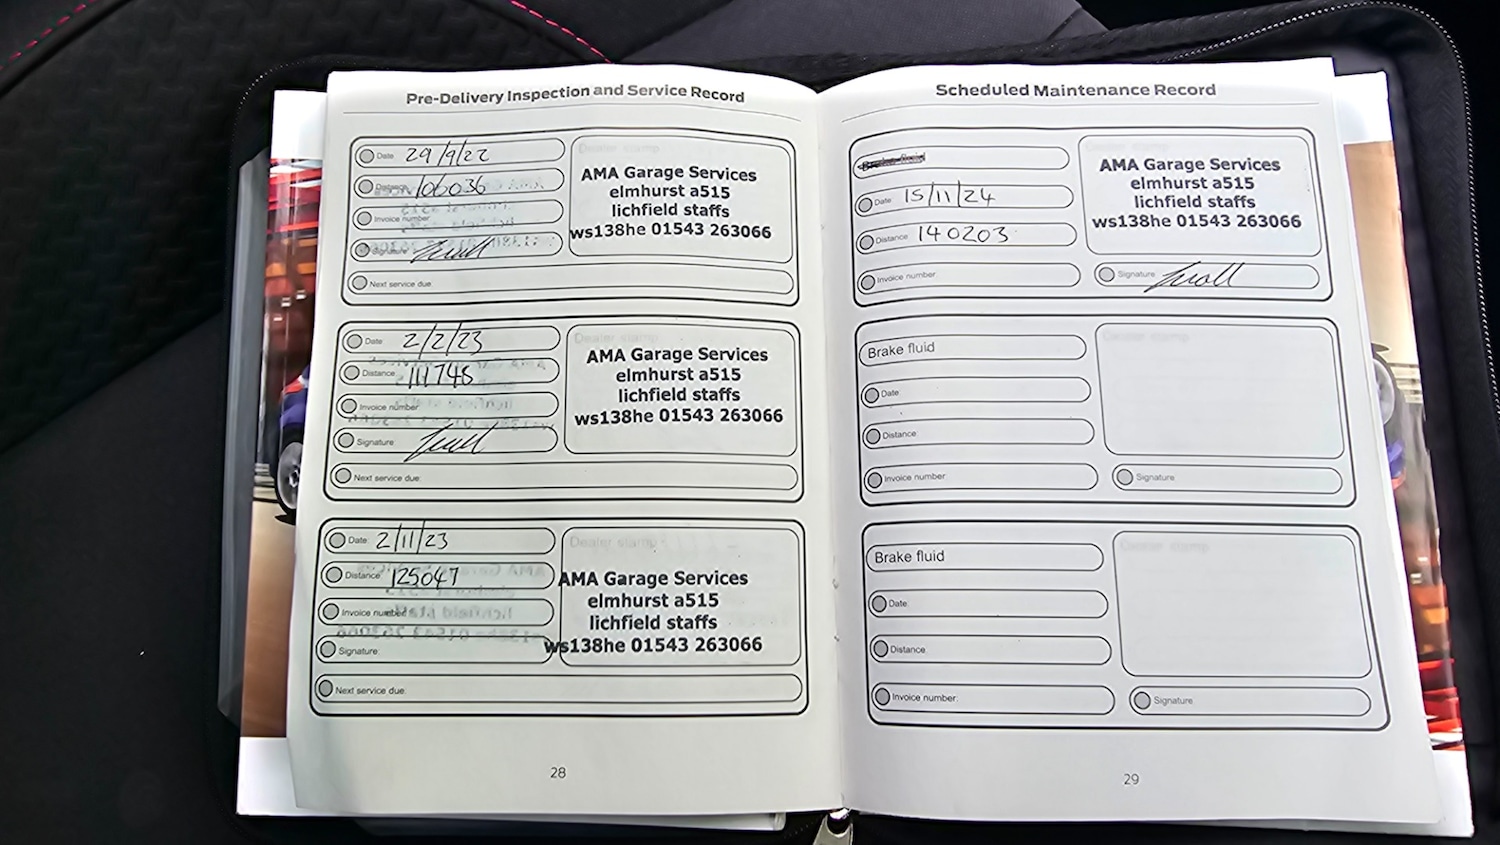 Pre-Delivery Inspection and Service Record
Date 29/9/22
Distance 106036
Invoice number
Signature
Next service due
Dealer stamp
AMA Garage Services
elmhurst a515
lichfield staffs
ws138he 01543 263066
Date 2/2/23
Distance 111748
Invoice number
Signature
Next service due
Dealer stamp
AMA Garage Services
elmhurst a515
lichfield staffs
ws138he 01543 263066
Date: 2/11/23
Distance 125047
Invoice number
Signature:
Next service due
Dealer stamp
AMA Garage Services
elmhurst a515
lichfield staffs
ws138he 01543 263066
28
Scheduled Maintenance Record
Brake fluid
Date 15/11/24
Distance 140203
Invoice number
Dealer stamp
AMA Garage Services
elmhurst a515
lichfield staffs
ws138he 01543 263066
Signature
Brake fluid
Date
Distance
Invoice number
Dealer stamp
Signature
Brake fluid
Date:
Distance
Invoice number:
Dealer stamp
Signature
29